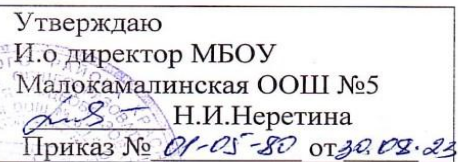 Утверждаю
И.о директор МБОУ
Малокамалинская ООШ №5
Н.И.Неретина
Приказ № 01-05-80 от 30.08.23